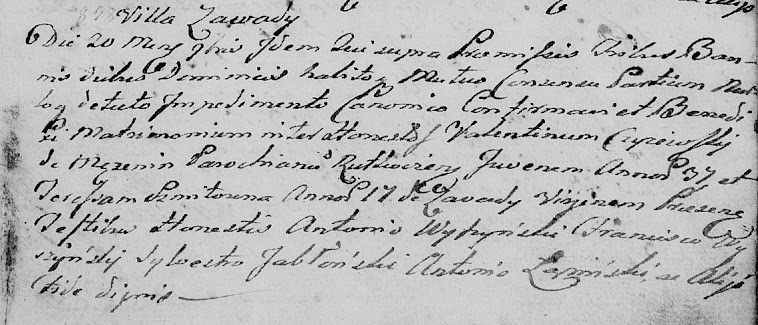 Villa Zawady
Die 20 Mens 9bris Idem Qui supra Praemissis Tribus Ban-
nis diebus Dominicis habitoq Mutuo Consensu Partium Nul
loq detecto Impedimento Canonico Confirmavi et Benedi
xi Matrimonium inter Honestos Valentinum
de Mężenin Parochianus Juvenem Annor 37 et
Annor 17 de Zawady Virginem Presene
Testibus Honestis Antonio Wyszyński Francisco Wy
szyński Sylvestro Jabłoński Antonio Łapiński ac Alijs
fide dignis